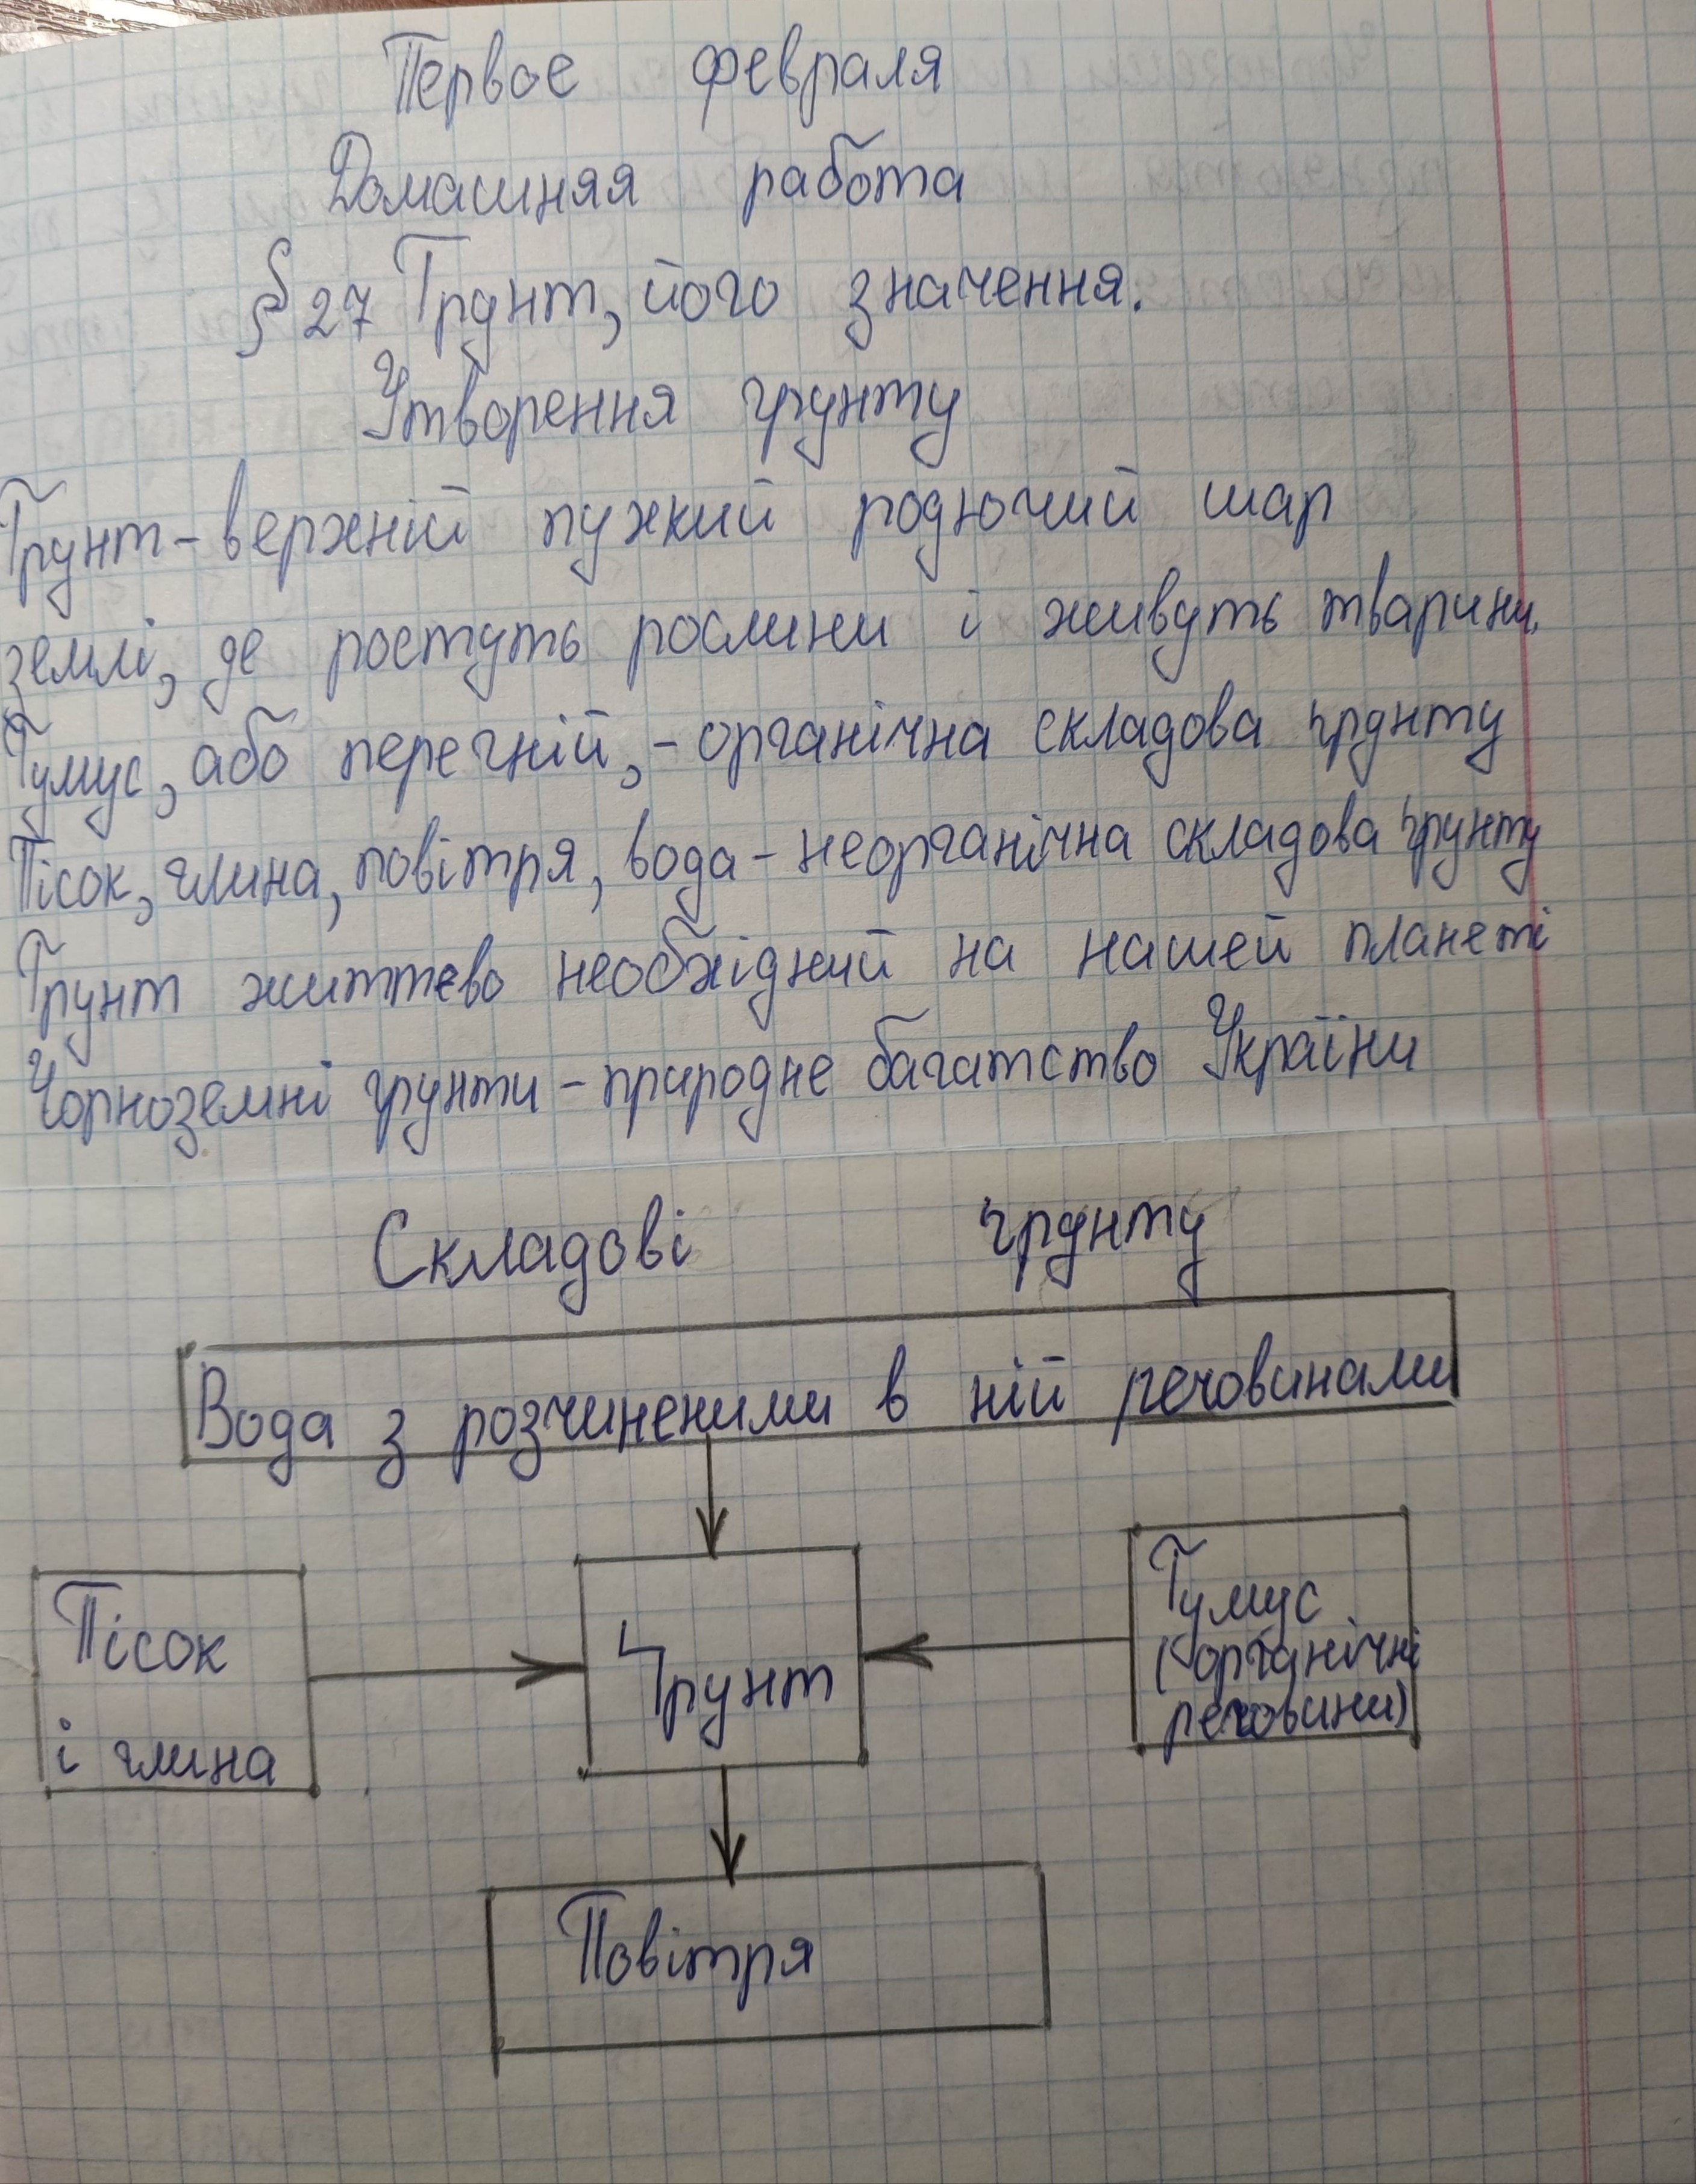 Первое февраля
Домашняя работа
§ 27 Грунт, його значення.
Утворення ґрунту
Грунт - верхній пухкий родючий шар
землі, де ростуть рослини і живуть тварини.
Гумус, або перегній, - органічна складова ґрунту
Пісок, глина, повітря, вода - неорганічна складова ґрунту
Грунт життєво необхідний на нашей планеті
Чорноземні ґрунти - природне багатство України
Складові ґрунту
Вода з розчиненими в ній речовинами
Пісок
і глина
Ґрунт
Гумус
(органічні
речовини)
Повітря